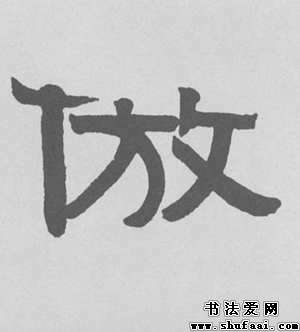 倣
书法爱网
www.shufaai.com